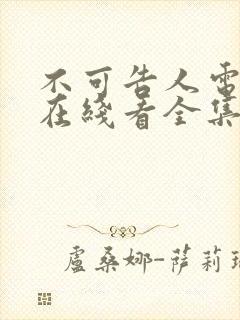 不可告人電
在綫看全集
盧桑娜-薩莉瑞